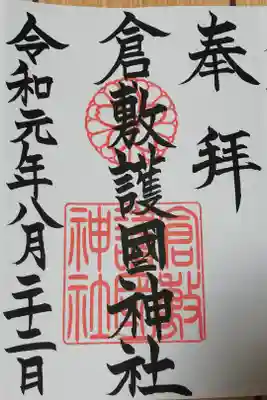 奉拝
倉敷護國神社
令和元年八月二十二日
倉敷
護國
神社